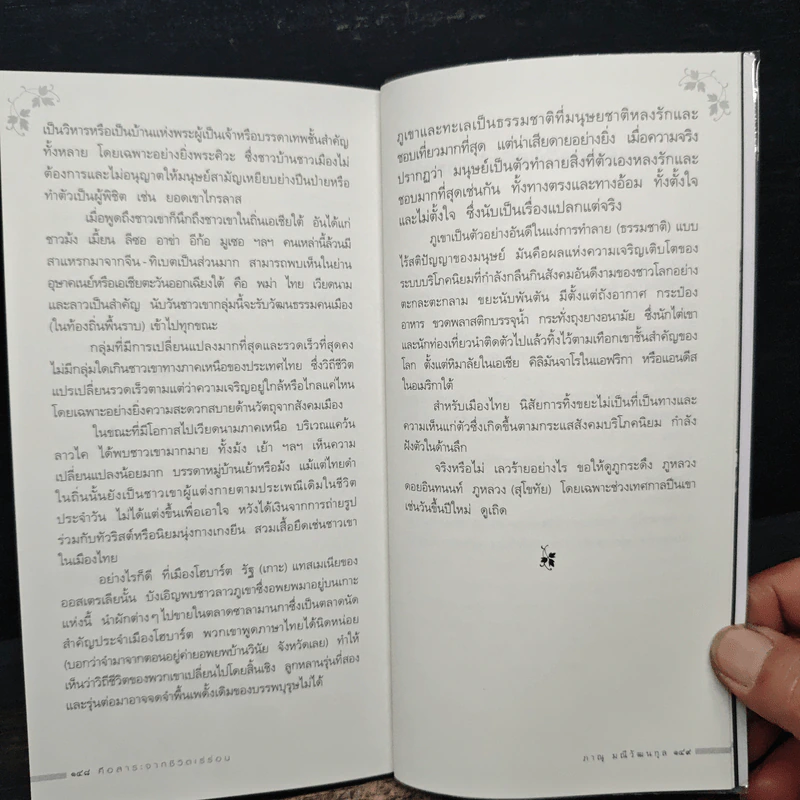 เป็นวิหารหรือเป็นบ้านแห่งพระผู้เป็นเจ้าหรือบรรดาเทพชั้นสำคัญ
ทั้งหลาย โดยเฉพาะอย่างยิ่งพระศิวะ ซึ่งชาวบ้านชาวเมืองไม่
ต้องการและไม่อนุญาตให้มนุษย์สามัญเหยียบย่างปีนป่ายหรือ
ทำตัวเป็นผู้พิชิต เช่น ยอดเขาไกรลาส
เมื่อพูดถึงชาวเขาก็นึกถึงชาวเขาในถิ่นเอเชียใต้ อันได้แก่
ชาวม้ง เมี้ยน ลีซอ อาข่า อีก้อ มูเซอ ฯลฯ คนเหล่านี้ล้วนมี
สาแหรกมาจากจีน-ทิเบตเป็นส่วนมาก สามารถพบเห็นในย่าน
อุษาคเนย์หรือเอเชียตะวันออกเฉียงใต้ คือ พม่า ไทย เวียดนาม
และลาวเป็นสำคัญ นับวันชาวเขากลุ่มนี้จะรับวัฒนธรรมคนเมือง
(ในท้องถิ่นพื้นราบ) เข้าไปทุกขณะ
กลุ่มที่มีการเปลี่ยนแปลงมากที่สุดและรวดเร็วที่สุดคง
ไม่มีกลุ่มใดเกินชาวเขาทางภาคเหนือของประเทศไทย ซึ่งวิถีชีวิต
แปรเปลี่ยนรวดเร็วตามแต่ว่าความเจริญอยู่ใกล้หรือไกลแค่ไหน
โดยเฉพาะอย่างยิ่งความสะดวกสบายด้านวัตถุจากสังคมเมือง
ในขณะที่มีโอกาสไปเวียดนามภาคเหนือ บริเวณแคว้น
ลาวไค ได้พบชาวเขามากมาย ทั้งม้ง เย้า ฯลฯ เห็นความ
เปลี่ยนแปลงน้อยมาก บรรดาหมู่บ้านเย้าหรือม้ง แม้แต่ไทยดำ
ในถิ่นนั้นยังเป็นชาวเขาผู้แต่งกายตามประเพณีเดิมในชีวิต
ประจำวัน ไม่ได้แต่งขึ้นเพื่อเอาใจ หวังได้เงินจากการถ่ายรูป
ร่วมกับทัวริสต์หรือนิยมนุ่งกางเกงยีน สวมเสื้อยืดเช่นชาวเขา
ในเมืองไทย
อย่างไรก็ดี ที่เมืองโฮบาร์ต รัฐ (เกาะ) แทสเมเนียของ
ออสเตรเลียนั้น บังเอิญพบชาวลาวภูเขาซึ่งอพยพมาอยู่บนเกาะ
แห่งนี้ นำผักต่างๆ ไปขายในตลาดซาลามานกาซึ่งเป็นตลาดนัด
สำคัญประจำเมืองโฮบาร์ต พวกเขาพูดภาษาไทยได้นิดหน่อย
(บอกว่าจำมาจากตอนอยู่ค่ายอพยพบ้านวินัย จังหวัดเลย) ทำให้
เห็นว่าวิถีชีวิตของพวกเขาเปลี่ยนไปโดยสิ้นเชิง ลูกหลานรุ่นที่สอง
และรุ่นต่อมาอาจจดจำพื้นเพดั้งเดิมของบรรพบุรุษไม่ได้
๑๔๘ คือสาระจากชีวิตเร่ร่อน
ภูเขาและทะเลเป็นธรรมชาติที่มนุษยชาติหลงรักและ
ชอบเที่ยวมากที่สุด แต่น่าเสียดายอย่างยิ่ง เมื่อความจริง
ปรากฏว่า มนุษย์เป็นตัวทำลายสิ่งที่ตัวเองหลงรักและ
ชอบมากที่สุดเช่นกัน ทั้งทางตรงและทางอ้อม ทั้งตั้งใจ
และไม่ตั้งใจ ซึ่งนับเป็นเรื่องแปลกแต่จริง
ภูเขาเป็นตัวอย่างอันดีในแง่การทำลาย (ธรรมชาติ) แบบ
ไร้สติปัญญาของมนุษย์ มันคือผลแห่งความเจริญเติบโตของ
ระบบบริโภคนิยมที่กำลังกลืนกินสังคมอันดีงามของชาวโลกอย่าง
ตะกละตะกลาม ขยะนับพันตัน มีตั้งแต่ถังอากาศ กระป๋อง
อาหาร ขวดพลาสติกบรรจุน้ำ กระทั่งถุงยางอนามัย ซึ่งนักไต่เขา
และนักท่องเที่ยวนำติดตัวไปแล้วทิ้งไว้ตามเทือกเขาชั้นสำคัญของ
โลก ตั้งแต่หิมาลัยในเอเชีย คิลิมันจาโรในแอฟริกา หรือแอนดีส
ในอเมริกาใต้
สำหรับเมืองไทย นิสัยการทิ้งขยะไม่เป็นที่เป็นทางและ
ความเห็นแก่ตัวซึ่งเกิดขึ้นตามกระแสสังคมบริโภคนิยม กำลัง
ฝังตัวในด้านลึก
จริงหรือไม่ เลวร้ายอย่างไร ขอให้ดูภูกระดึง ภูหลวง
ดอยอินทนนท์ ภูหลวง (สุโขทัย) โดยเฉพาะช่วงเทศกาลปีนเขา
เช่นวันขึ้นปีใหม่ ดูเถิด
ภาณุ มณีวัฒนกุล ๑๔๙